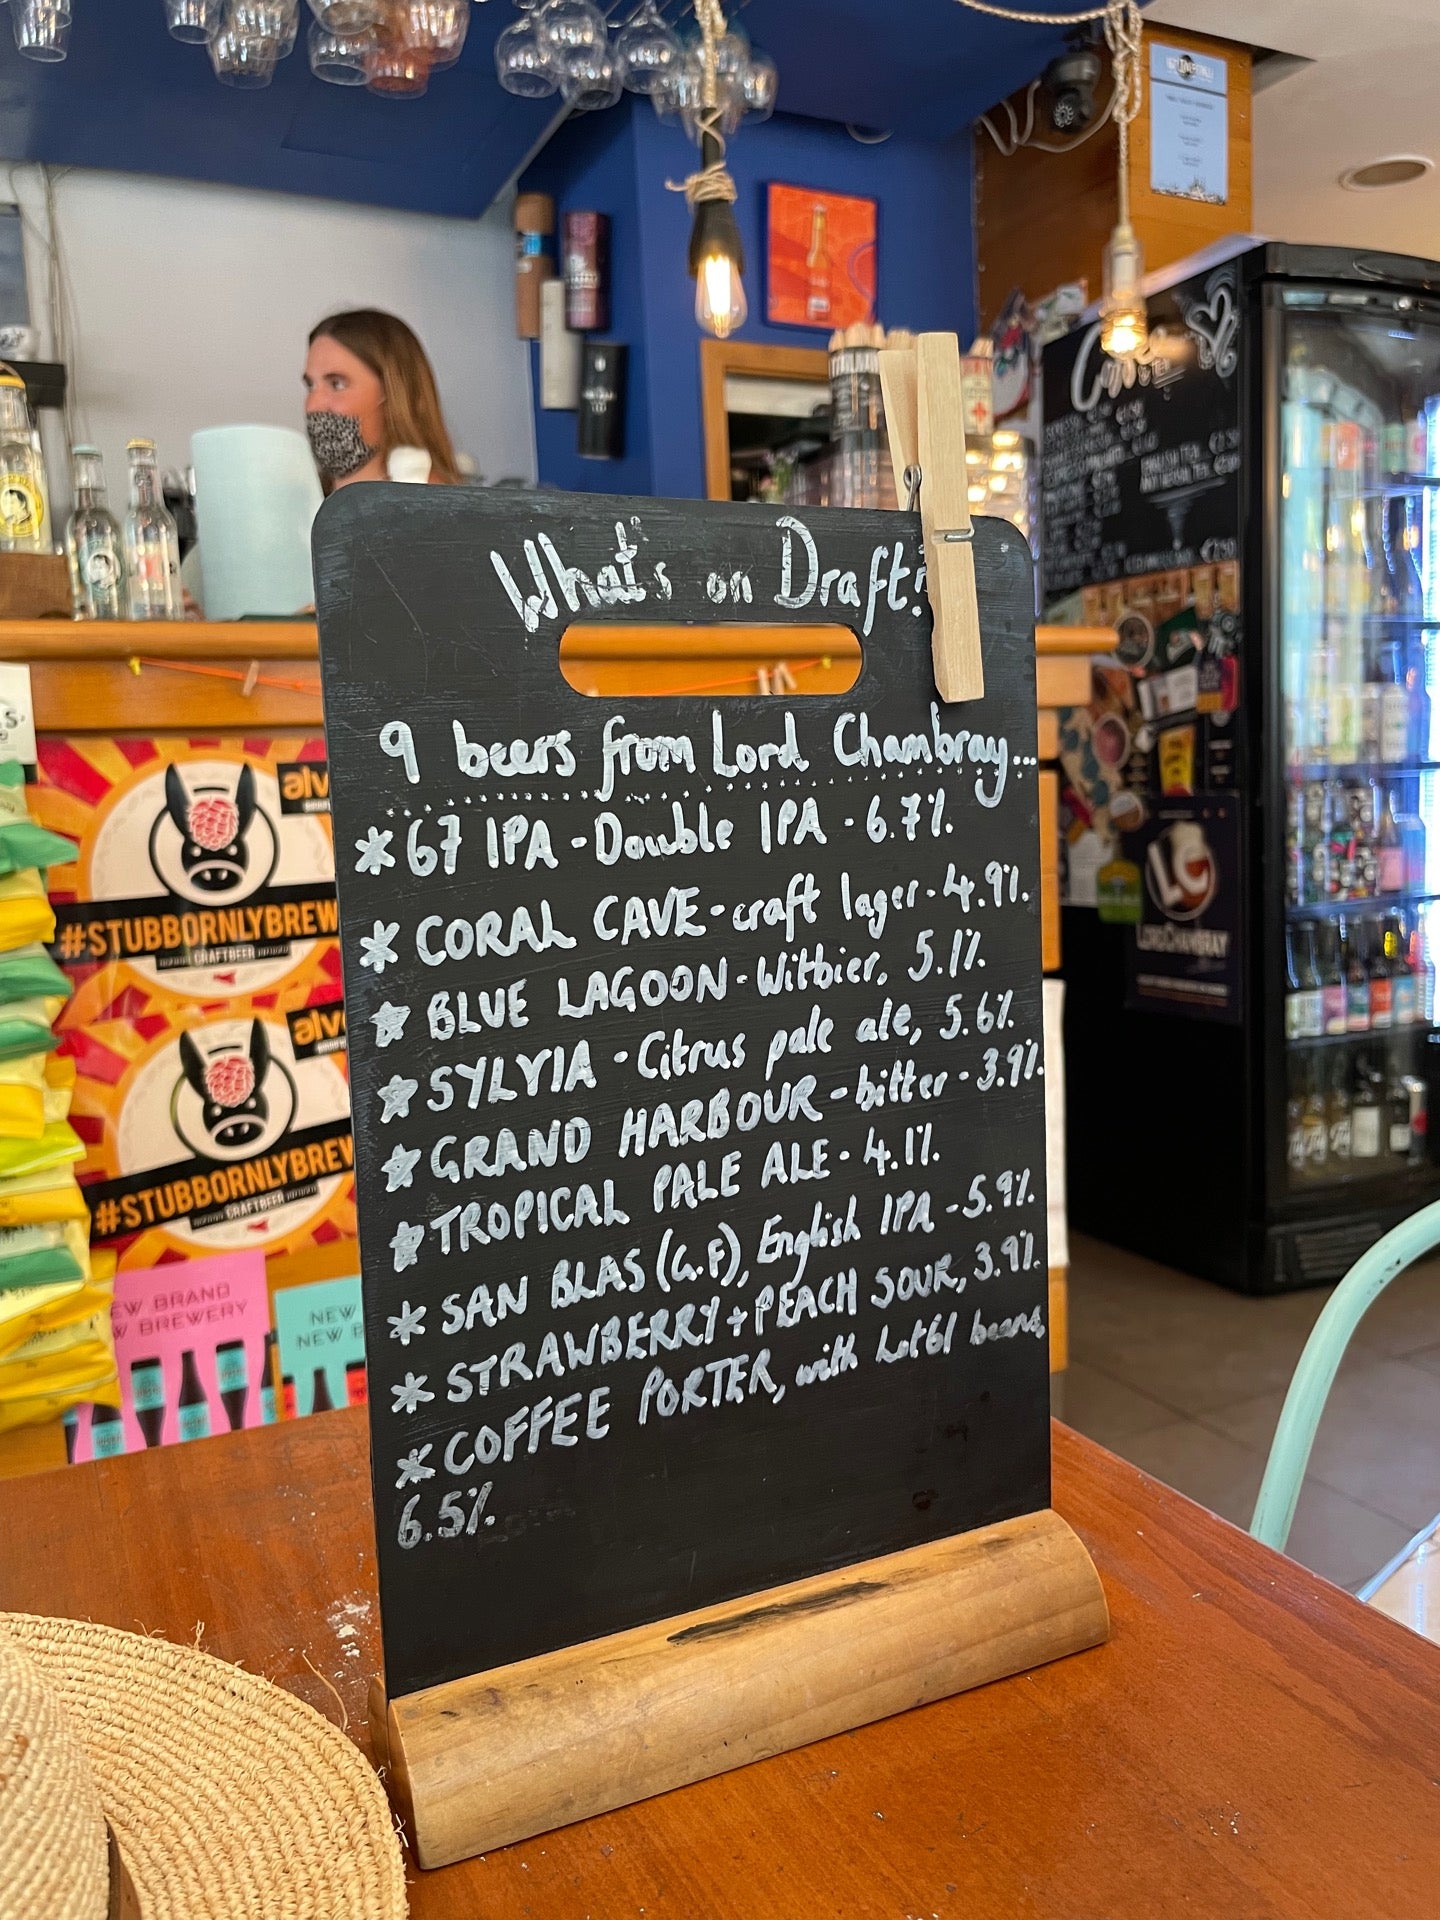 What's on Draft?
9 beers from Lord Chambray...
* 67 IPA - Double IPA - 6.7%.
* CORAL CAVE - craft lager - 4.9%.
* BLUE LAGOON - Witbier, 5.1%.
* SYLVIA - Citrus pale ale, 5.6%.
* GRAND HARBOUR - bitter - 3.9%.
* TROPICAL PALE ALE - 4.1%.
* SAN BLAS (G.F), English IPA - 5.9%.
* STRAWBERRY + PEACH SOUR, 3.9%.
* COFFEE PORTER, with Lot61 beans,
6.5%.
#STUBBORNLYBREW
CRAFT BEER
#STUBBORNLYBREW
CRAFT BEER
EW BRAND
W BREWERY
NEW
NEW B
LC
LORD CHAMBRAY